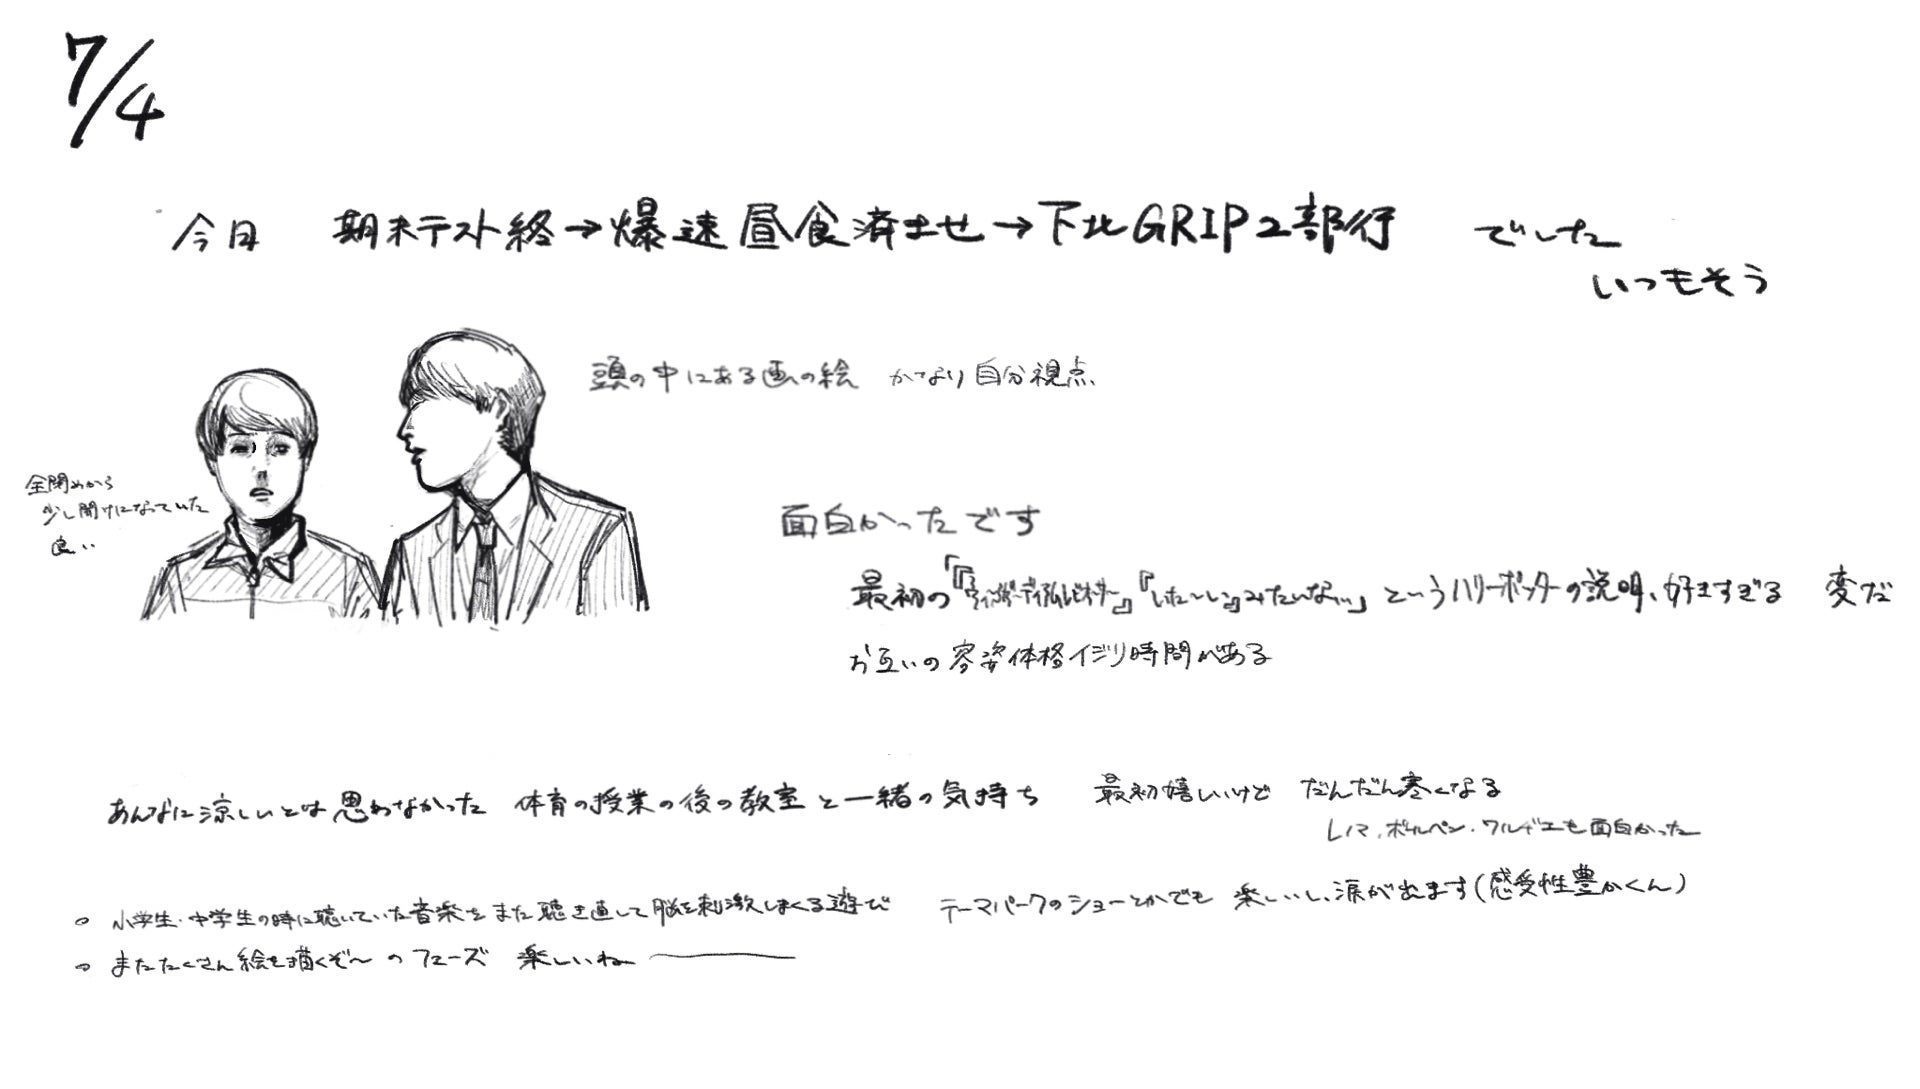 7/4
今日 期末テスト終→爆速昼食済ませ→下北GRIP2部行 でした
いつもそう
頭の中にある画の絵 かなり自分視点
全閉めから
少し開けになっていた
良い
面白かったです
最初の「『ウィンガーディアムレビオサー』『したーい』みたいな…」というハリーポッターの説明、好きすぎる 変だ
お互いの容姿体格イジり時間がある
あんなに涼しいとは思わなかった 体育の授業の後の教室と一緒の気持ち 最初嬉しいけど だんだん寒くなる
レマ、ボールペン・ワルデエも面白かった
○ 小学生・中学生の時に聴いていた音楽をまた聴き直して脳を刺激しまくる遊び テーマパークのショーとかでも 楽しいし、涙が出ます(感受性豊かくん)
○ またたくさん絵を描くぞ〜のフェーズ 楽しいねー